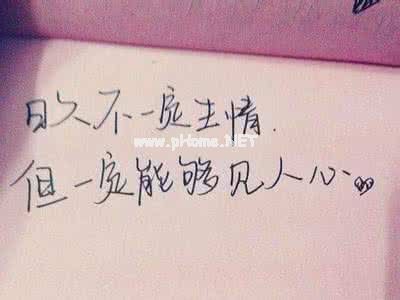 日久不一定生情.
www.pHome.NET
但一定能够见人心..